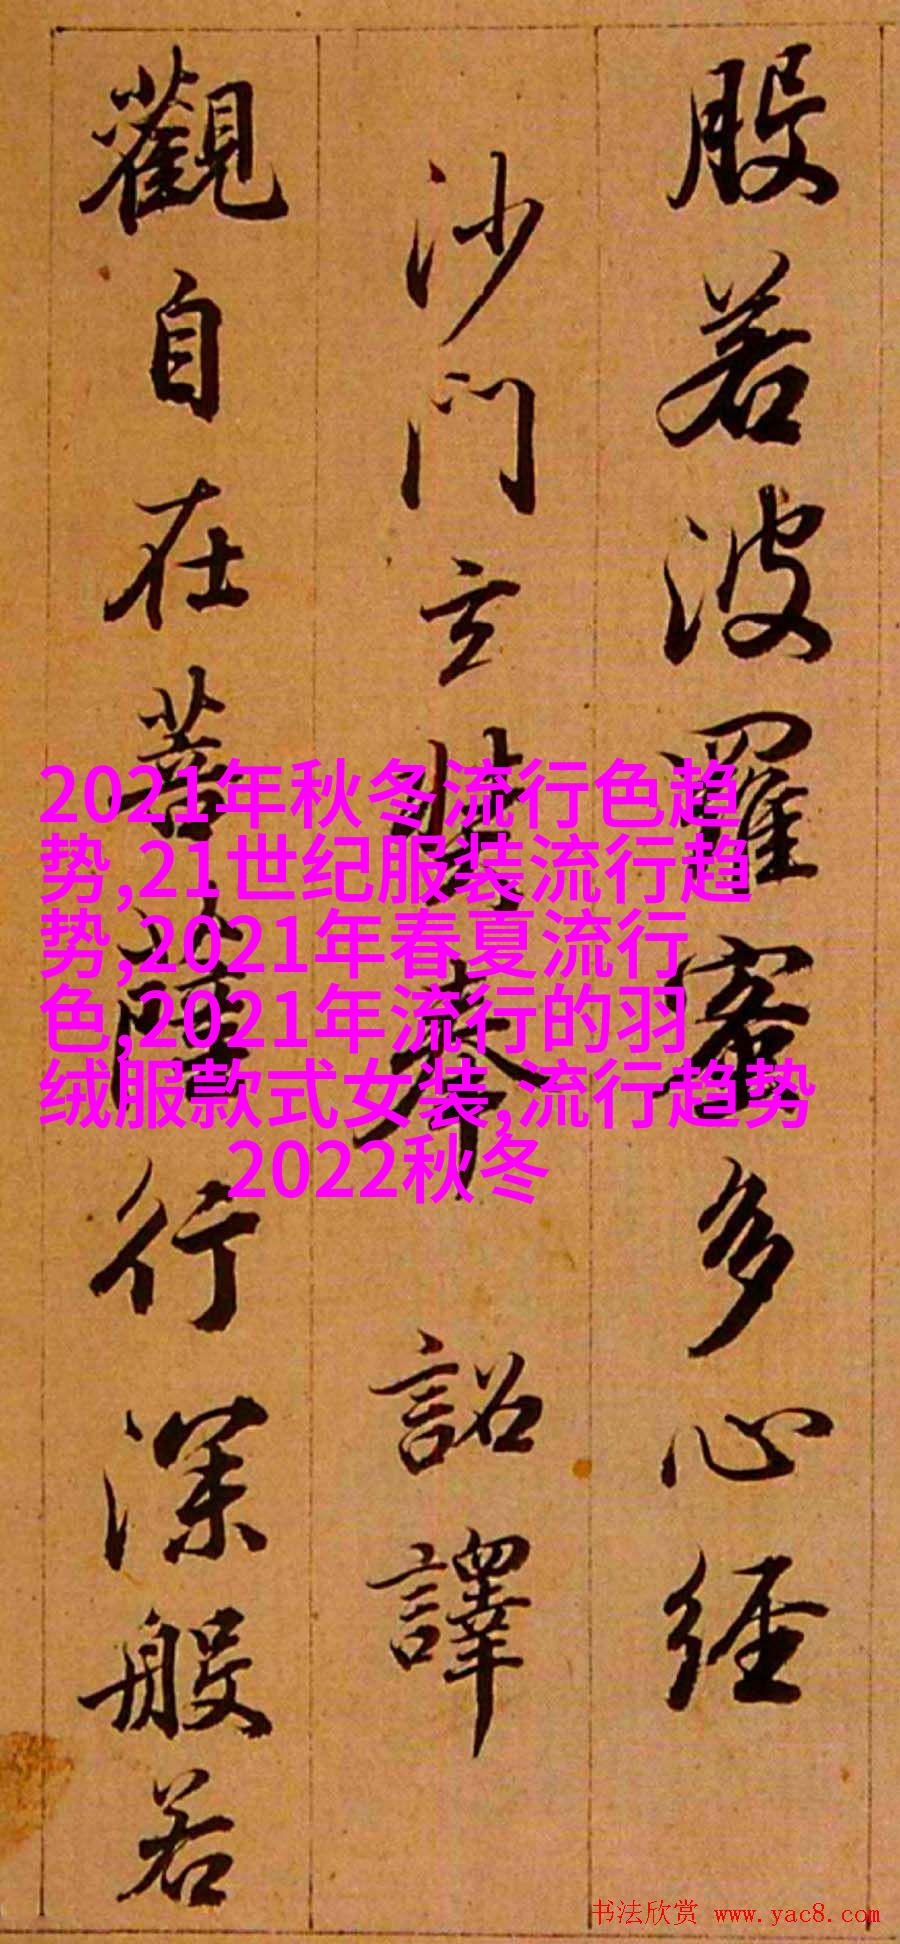 般若波羅蜜多心経
沙門玄奘奉 詔譯
觀自在菩薩行深般若
2021年秋冬流行色趋
势,21世纪服装流行趋
势,2021年春夏流行
色,2021年流行的羽
绒服款式女装,流行趋势
2022秋冬
书法欣赏 www.yac8.com